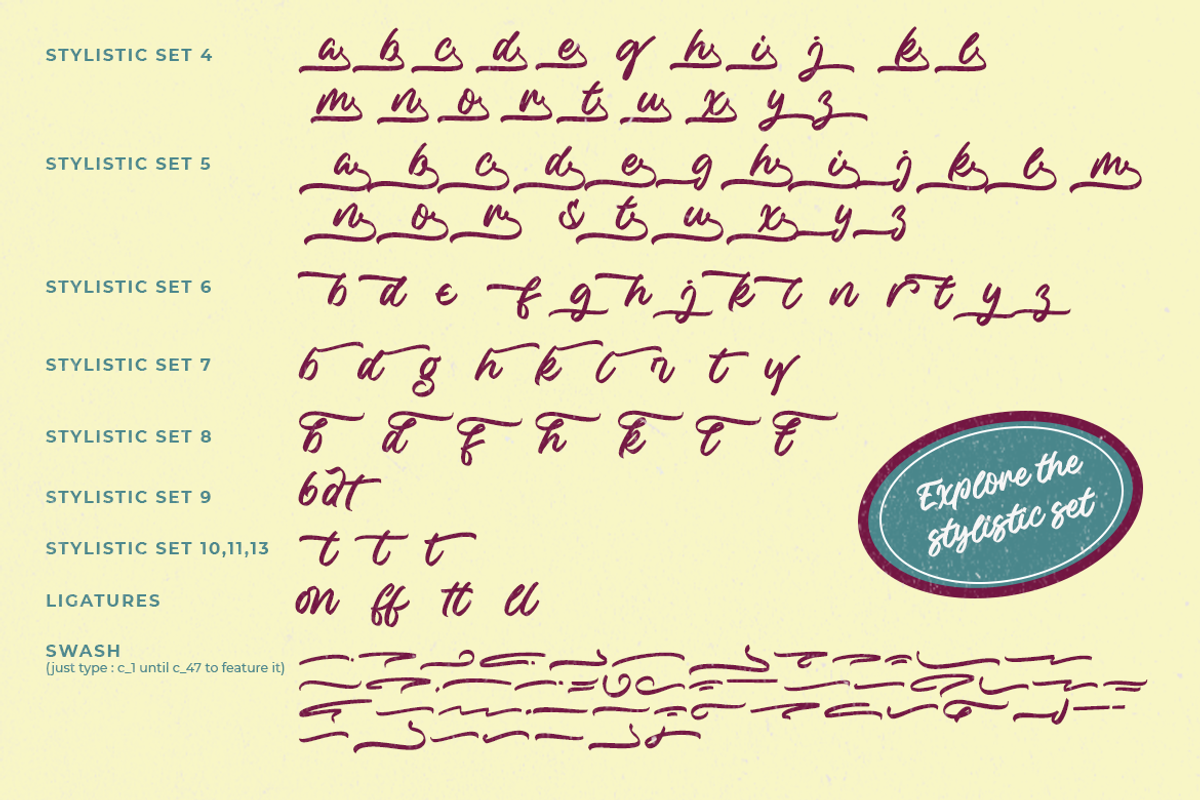 STYLISTIC SET 4
a b c d e g h i j k l
m n o r t u x y z
STYLISTIC SET 5
a b c d e g h i j k l m
n o r s t u x y z
STYLISTIC SET 6
b d e f g h j k l n r t y z
STYLISTIC SET 7
b d g h k l n t y
STYLISTIC SET 8
b d f h k l t
STYLISTIC SET 9
b d t
STYLISTIC SET 10,11,13
t t t
LIGATURES
on ff tt ll
SWASH
(just type : c_1 until c_47 to feature it)
Explore the
stylistic set